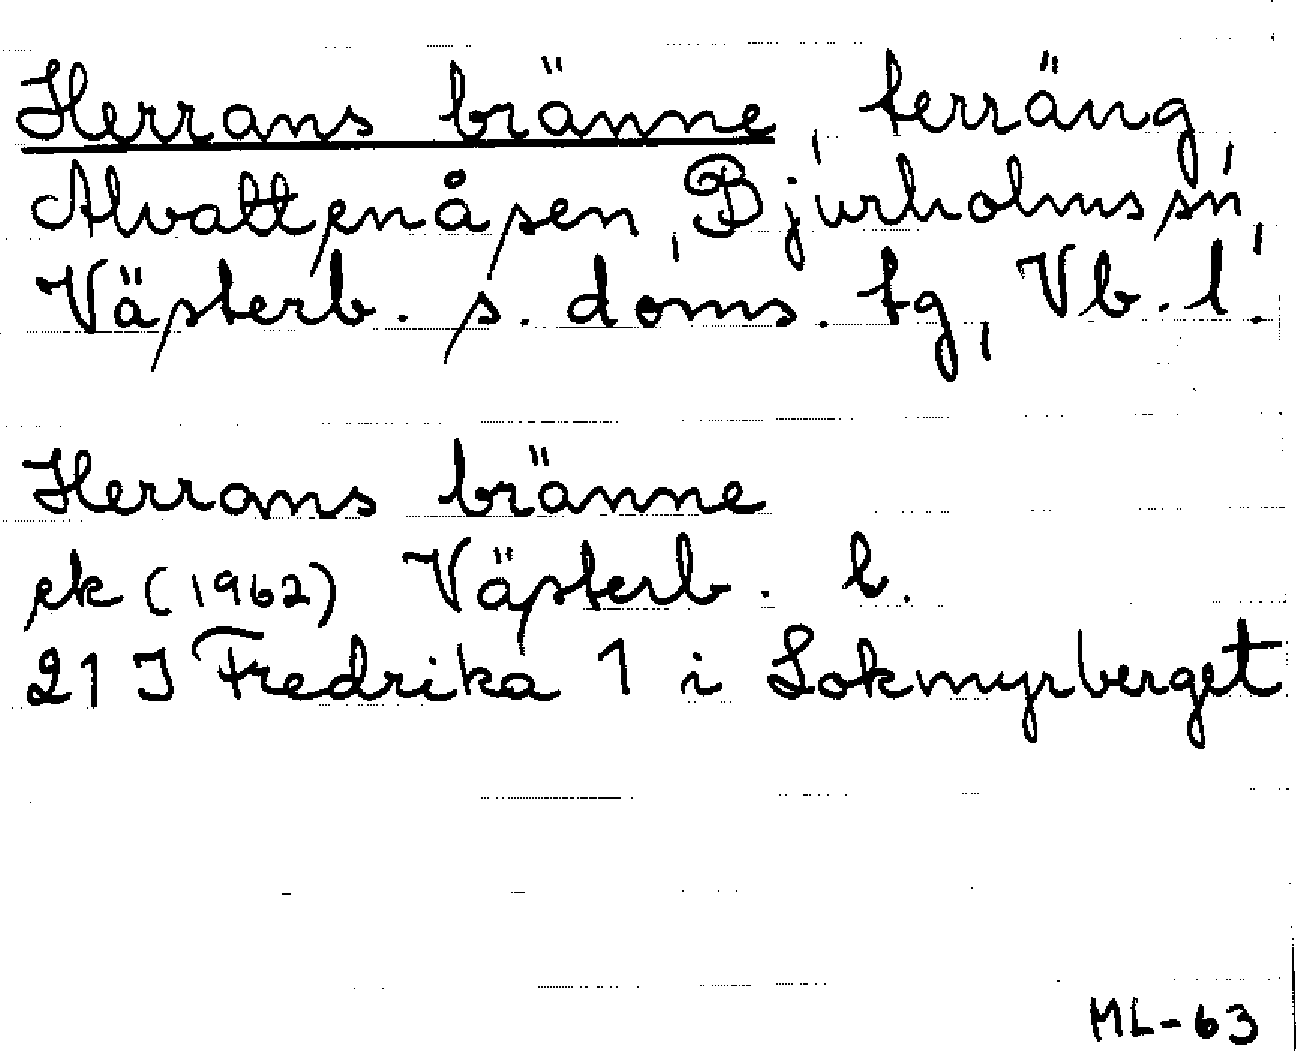 Herrans bränne, terräng,
Alvattenåsen, Bjurholms sn,
Västerb. s. doms. tg, Vb. l.
Herrans bränne
ek (1962) Västerb. l.
21 J Fredrika 1 i Lokmyrberget
ML-63